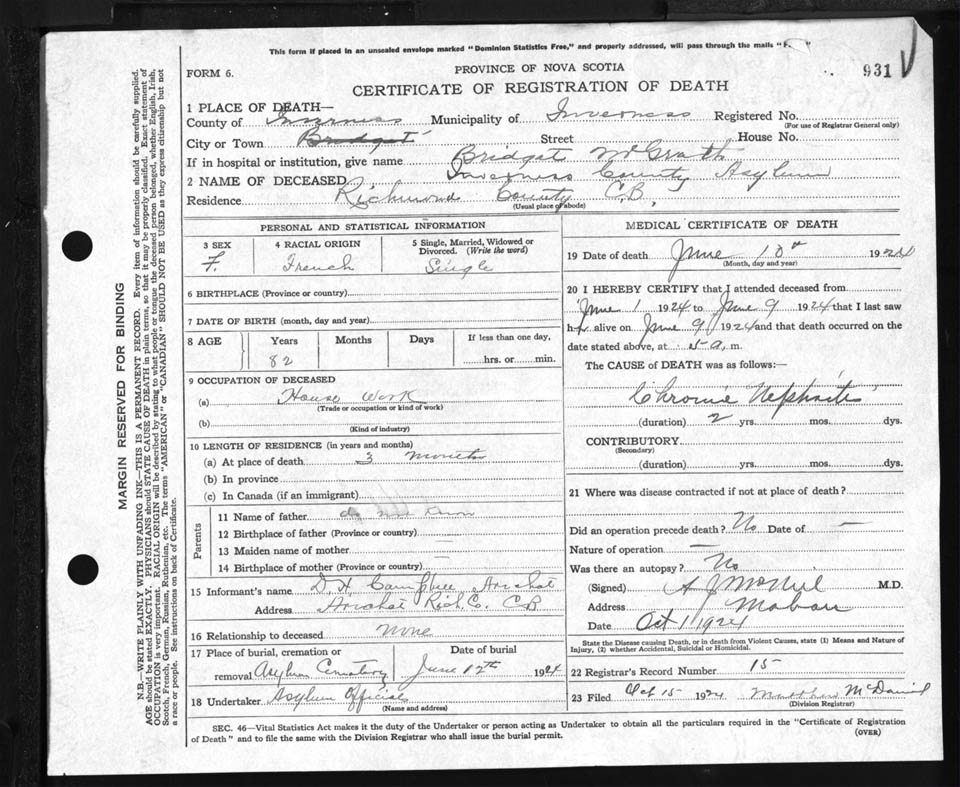 This form if placed in an unsealed envelope marked "Dominion Statistics Free," and properly addressed, will pass through the mails "F
FORM 6.
PROVINCE OF NOVA SCOTIA
931
CERTIFICATE OF REGISTRATION OF DEATH
1 PLACE OF DEATH—
County of Inverness Municipality of Inverness Registered No.
(For use of Registrar General only)
City or Town Bridget Street House No.
If in hospital or institution, give name Bridget McGrath
2 NAME OF DECEASED Inverness County Asylum
Residence Richmond County C.B,
(Usual place of abode)
PERSONAL AND STATISTICAL INFORMATION
3 SEX
F.
4 RACIAL ORIGIN
French
5 Single, Married, Widowed or Divorced. (Write the word)
Single
6 BIRTHPLACE (Province or country)
7 DATE OF BIRTH (month, day and year)
8 AGE
Years Months Days If less than one day,
82 hrs. or min.
9 OCCUPATION OF DECEASED
(a) House Work
(Trade or occupation or kind of work)
(b)
(Kind of industry)
10 LENGTH OF RESIDENCE (in years and months)
(a) At place of death 3 months
(b) In province
(c) In Canada (if an immigrant)
Parents
11 Name of father do not know
12 Birthplace of father (Province or country)
13 Maiden name of mother
14 Birthplace of mother (Province or country)
15 Informant's name D. H. Campbell Arichat
Address Arichat Rich. Co. CB
16 Relationship to deceased none
17 Place of burial, cremation or Date of burial
removal Asylum Cemetery June 12th 1924
18 Undertaker Asylum Official
(Name and address)
MEDICAL CERTIFICATE OF DEATH
19 Date of death June 10th 1924
(Month, day and year)
20 I HEREBY CERTIFY that I attended deceased from
June 1 1924 to June 9 1924 that I last saw
her alive on June 9 1924 and that death occurred on
date stated above, at 5 a. m.
The CAUSE of DEATH was as follows:
Chronic Nephritis
(duration) 2 yrs. mos. dys.
CONTRIBUTORY
(Secondary)
(duration) yrs. mos. dys.
21 Where was disease contracted if not at place of death?
Did an operation precede death? No Date of —
Nature of operation —
Was there an autopsy? No
(Signed) A J McNeil M.D.
Address Mabou
Date Oct 1 1924
State the Disease causing Death, or in death from Violent Causes, state (1) Means and Nature of
Injury, (2) whether Accidental, Suicidal or Homicidal.
22 Registrar's Record Number 15
23 Filed Oct 15 1924 Matthew McDaniel
(Division Registrar)
SEC. 46—Vital Statistics Act makes it the duty of the Undertaker or person acting as Undertaker to obtain all the particulars required in the "Certificate of Registration
of Death" and to file the same with the Division Registrar who shall issue the burial permit.
(OVER)
MARGIN RESERVED FOR BINDING
N.B.—WRITE PLAINLY WITH UNFADING INK—THIS IS A PERMANENT RECORD. Every item of information should be carefully supplied.
AGE should be stated EXACTLY. PHYSICIANS should STATE CAUSE OF DEATH in plain terms, so that it may be properly classified. Exact statement of
OCCUPATION is very important. RACIAL ORIGIN will be described by stating to what people or tongue the deceased person belonged, whether English, Irish,
Scotch, French, German, Russian, Ruthenian, etc. The terms "AMERICAN" or "CANADIAN" SHOULD NOT BE USED as they express citizenship but not
a race or people. See instructions on back of Certificate.